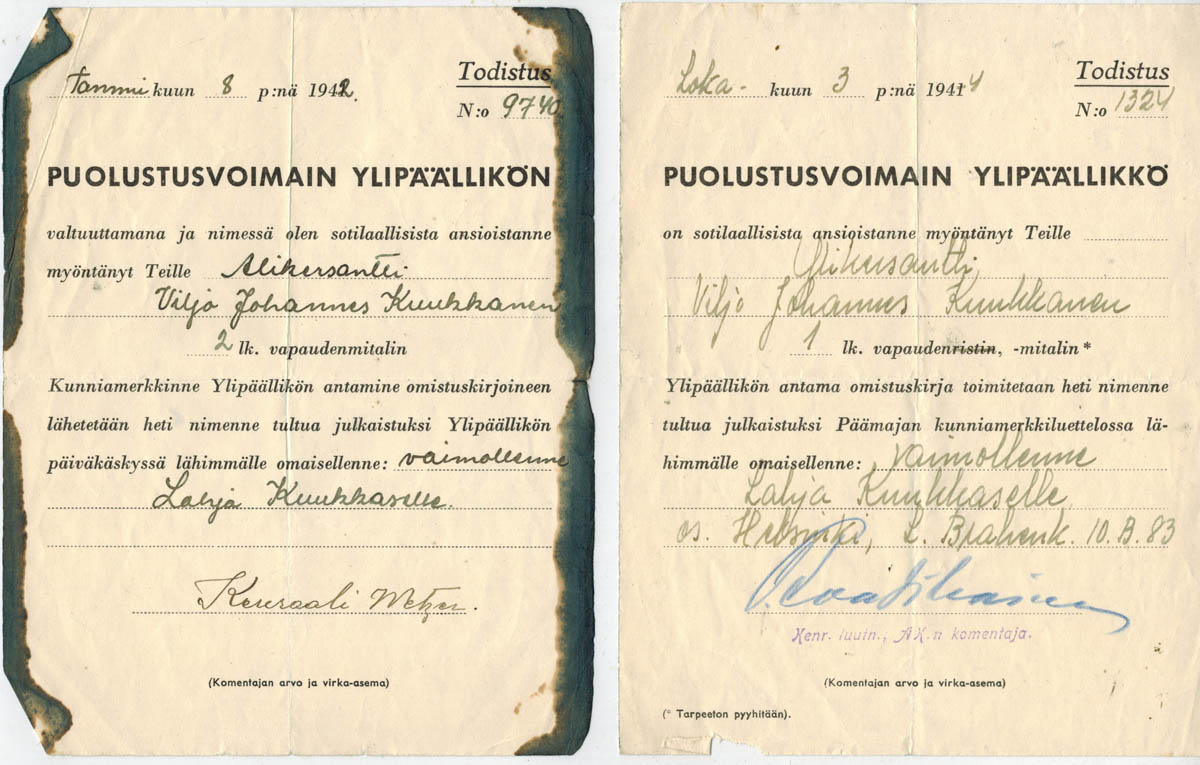 Tammi kuun 8 p:nä 1942.
Todistus
N:o 9740
PUOLUSTUSVOIMAIN YLIPÄÄLLIKÖN
valtuuttamana ja nimessä olen sotilaallisista ansioistanne
myöntänyt Teille Alikersantti
Viljo Johannes Kuukkanen
2 lk. vapaudenmitalin
Kunniamerkkinne Ylipäällikön antamine omistuskirjoineen
lähetetään heti nimenne tultua julkaistuksi Ylipäällikön
päiväkäskyssä lähimmälle omaisellenne: vaimollenne
Lahja Kuukkaselle.
Kenraali
(Komentajan arvo ja virka-asema)
Loka- kuun 3 p:nä 1944
Todistus
N:o 1324
PUOLUSTUSVOIMAIN YLIPÄÄLLIKKÖ
on sotilaallisista ansioistanne myöntänyt Teille
Alikersantti
Viljo Johannes Kuukkanen
1 lk. vapaudenristin, -mitalin*
Ylipäällikön antama omistuskirja toimitetaan heti nimenne
tultua julkaistuksi Päämajan kunniamerkkiluettelossa lä-
himmälle omaisellenne: vaimollenne
Lahja Kuukkaselle
os. Helsinki, L. Brahenk. 10.B.83
Kenr. luutn., AK:n komentaja.
(Komentajan arvo ja virka-asema)
(* Tarpeeton pyyhitään).